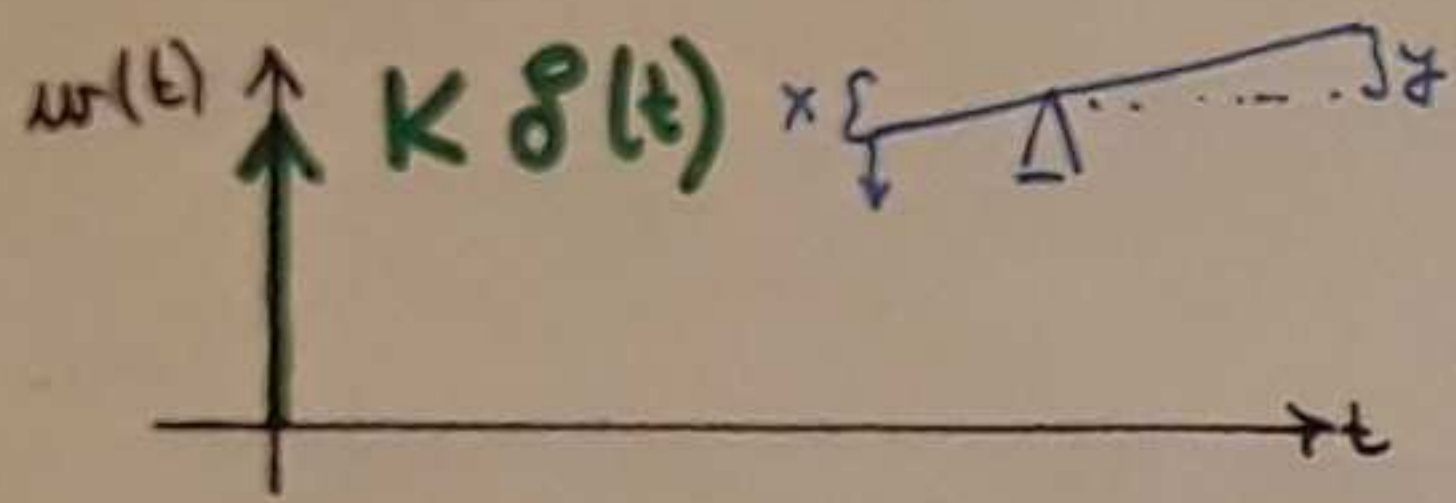 w(t)
K δ(t)
x
y
t